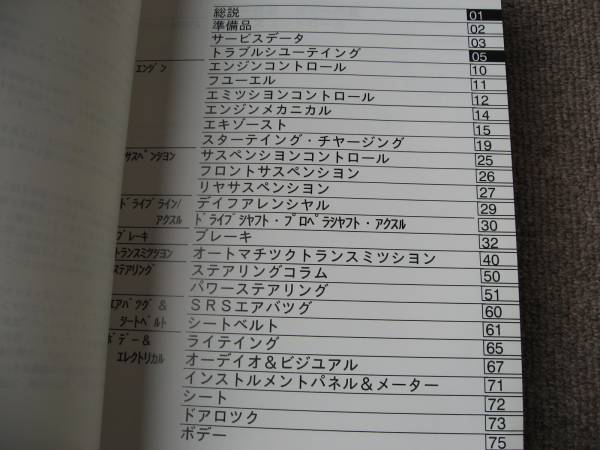 総説 01
準備品 02
サービスデータ 03
トラブルシユーテイング 05
ｴﾝｼﾞﾝ エンジンコントロール 10
フユーエル 11
エミツシヨンコントロール 12
エンジンメカニカル 14
エキゾースト 15
スターテイング・チヤージング 19
ｻｽﾍﾟﾝｼｮﾝ サスペンシヨンコントロール 25
フロントサスペンシヨン 26
リヤサスペンシヨン 27
ﾄﾞﾗｲﾌﾞﾗｲﾝ/ デイフアレンシヤル 29
ｱｸｽﾙ ﾄﾞﾗｲﾌﾞｼｬﾌﾄ・ﾌﾟﾛﾍﾟﾗｼｬﾌﾄ・ｱｸｽﾙ 30
ﾌﾞﾚｰｷ ブレーキ 32
ﾄﾗﾝｽﾐｯｼｮﾝ オートマチツクトランスミツシヨン 40
ｽﾃｱﾘﾝｸﾞ ステアリングコラム 50
パワーステアリング 51
ｴｱﾊﾞｯｸﾞ & ＳＲＳエアバツグ 60
ｼｰﾄﾍﾞﾙﾄ シートベルト 61
ﾎﾞﾃﾞｰ & ライテイング 65
ｴﾚｸﾄﾘｶﾙ オーデイオ＆ビジユアル 67
インストルメントパネル＆メーター 71
シート 72
ドアロツク 73
ボデー 75